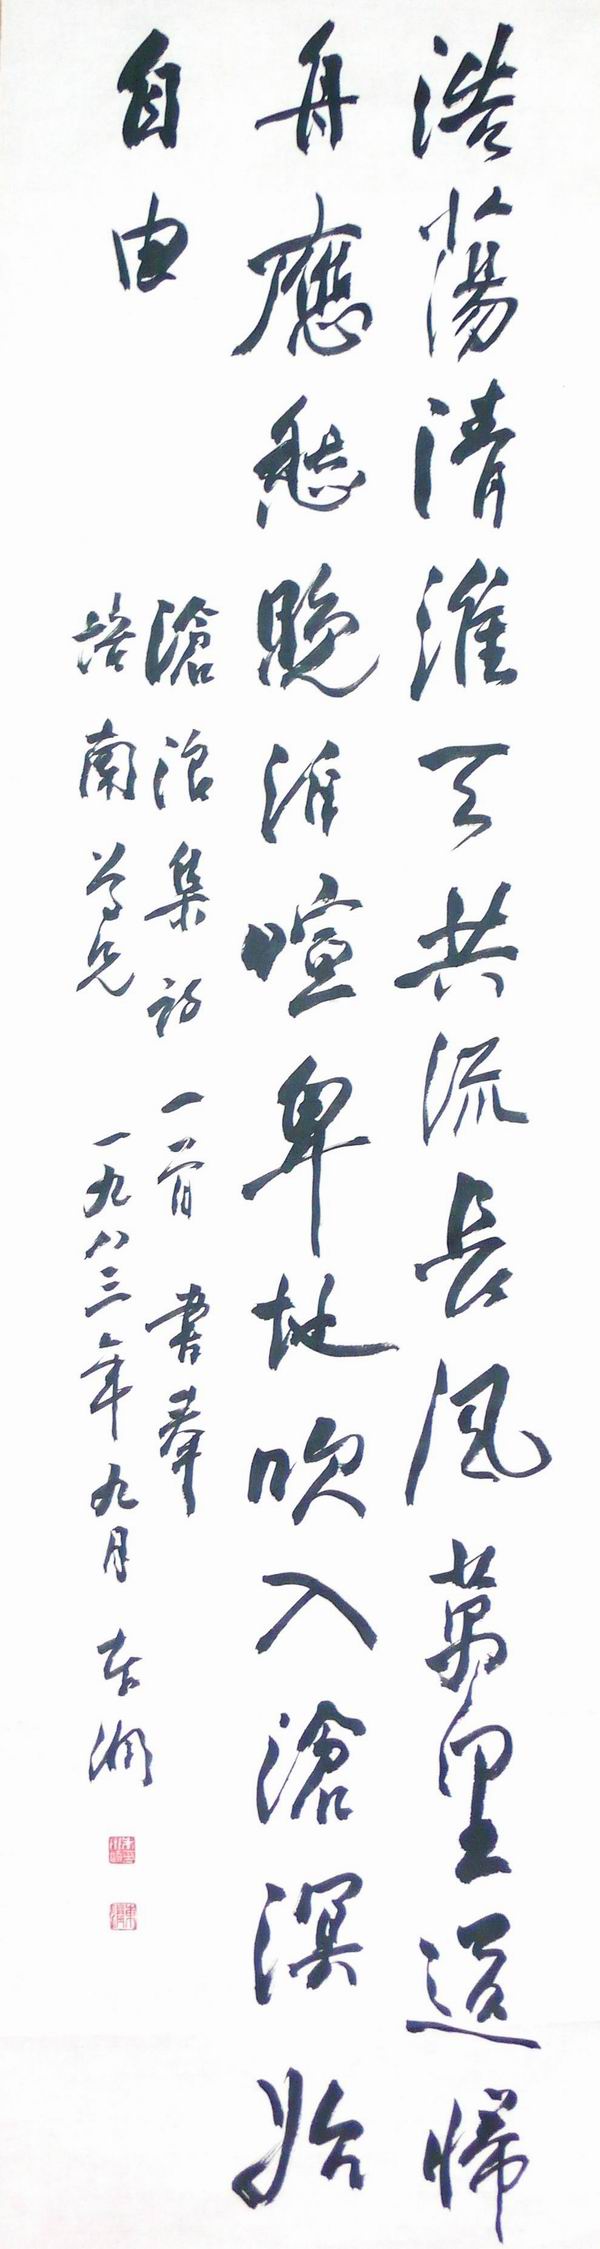 浩蕩清淮天共流長風萬里迢歸
舟應愁晚泊喧卑地吹入滄溟始
自由
滄浪集詩 一首 書奉
培南尊兄 一九八三年九月 东潤